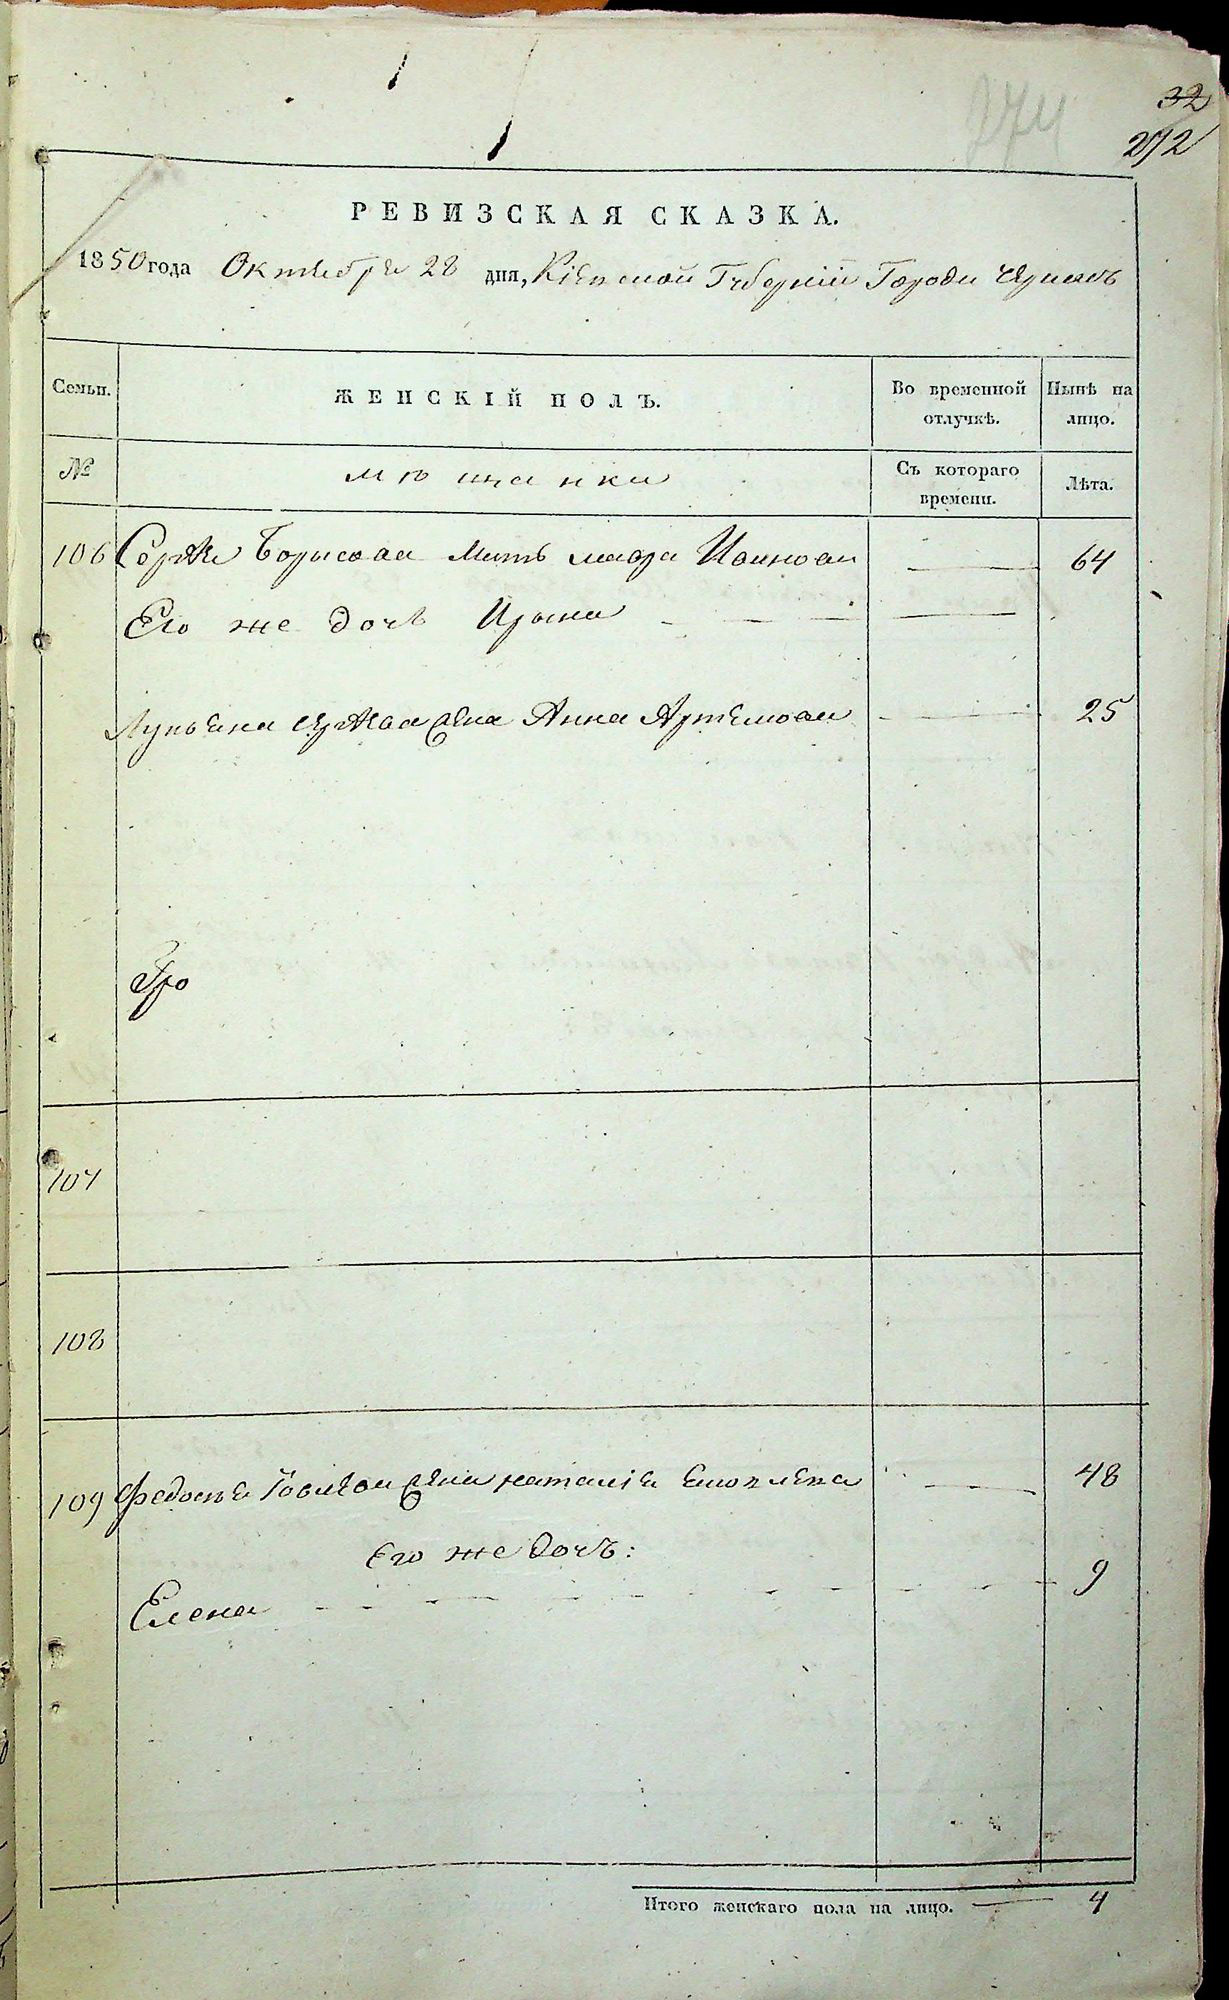 274
32
272
РЕВИЗСКАЯ СКАЗКА.
1850 года Октября 28 дня, Кіевской Губерніи Города
Семьи.
ЖЕНСКІЙ ПОЛЪ.
Во временной отлучкѣ.
Нынѣ на лицо.
№
мѣщанки
Съ котораго времени.
Лѣта.
106 Борисова Мать Иванова 64
Его же дочь Ирина
жена Анна Артемова 25
107
108
109 жена наталія 48
Его же дочь:
Елена 9
Итого женскаго пола на лицо. 4